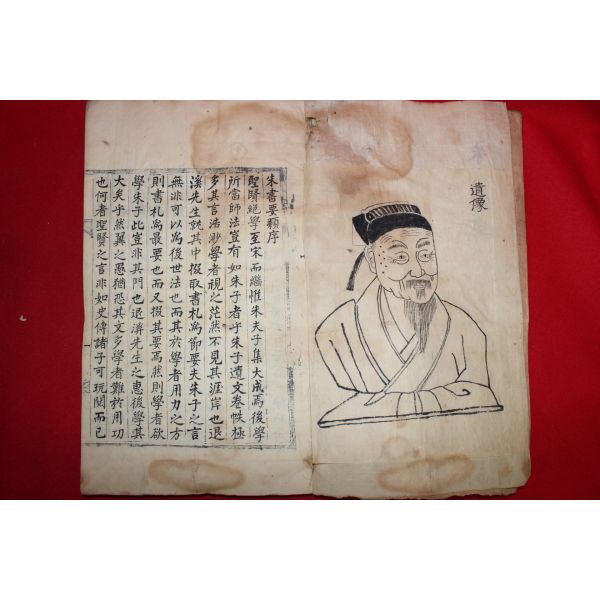 遺像
朱書要類序
聖賢絕學至宋而繼惟朱夫子集大成焉後學
所當師法豈有如朱子者乎朱子遺文卷帙極
多其言浩渺學者視之茫然不見其涯岸也退
溪先生就其中掇取書札爲節要夫朱子之言
無非可以爲後世法也而其於學者用力之方
則書札爲最要也而又掇其要焉然則學者欲
學朱子比豈非其門也退溪先生之惠後學其
大矣乎然翼之愚猶恐其文多學者難於用功
也何者聖賢之言非如史傳諸子可玩閱而已